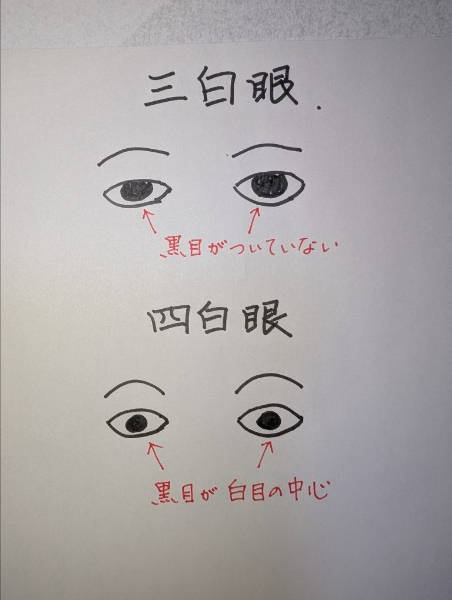 三白眼
黒目がついていない
四白眼
黒目が白目の中心